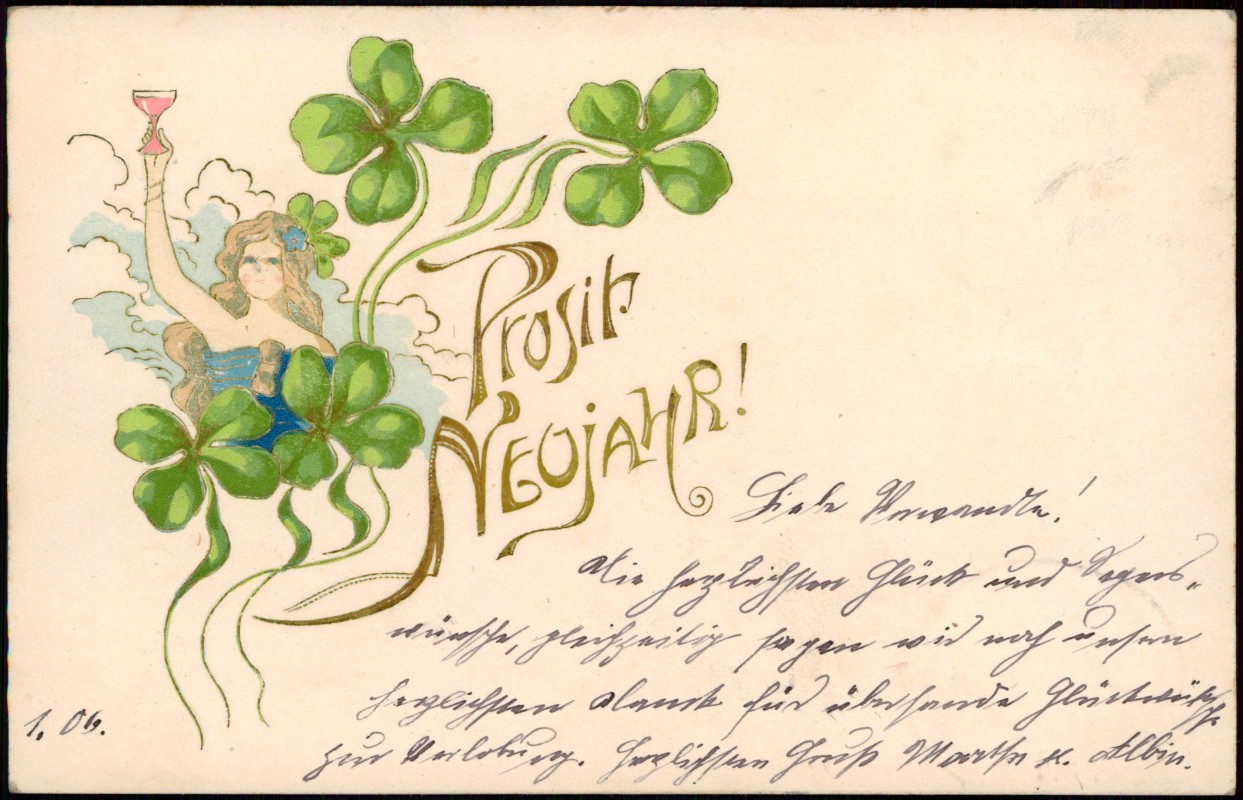 Prosit
NEUJAHR!
Liebe Verwandte!
Die herzlichsten Glück und Segens-
wünsche, gleichzeitig sagen wir noch unsern
herzlichsten Dank für übersandte Glückwünsche
zur Verlobung. Herzlichsten Gruß Marthe u. Albin.
1. 06.